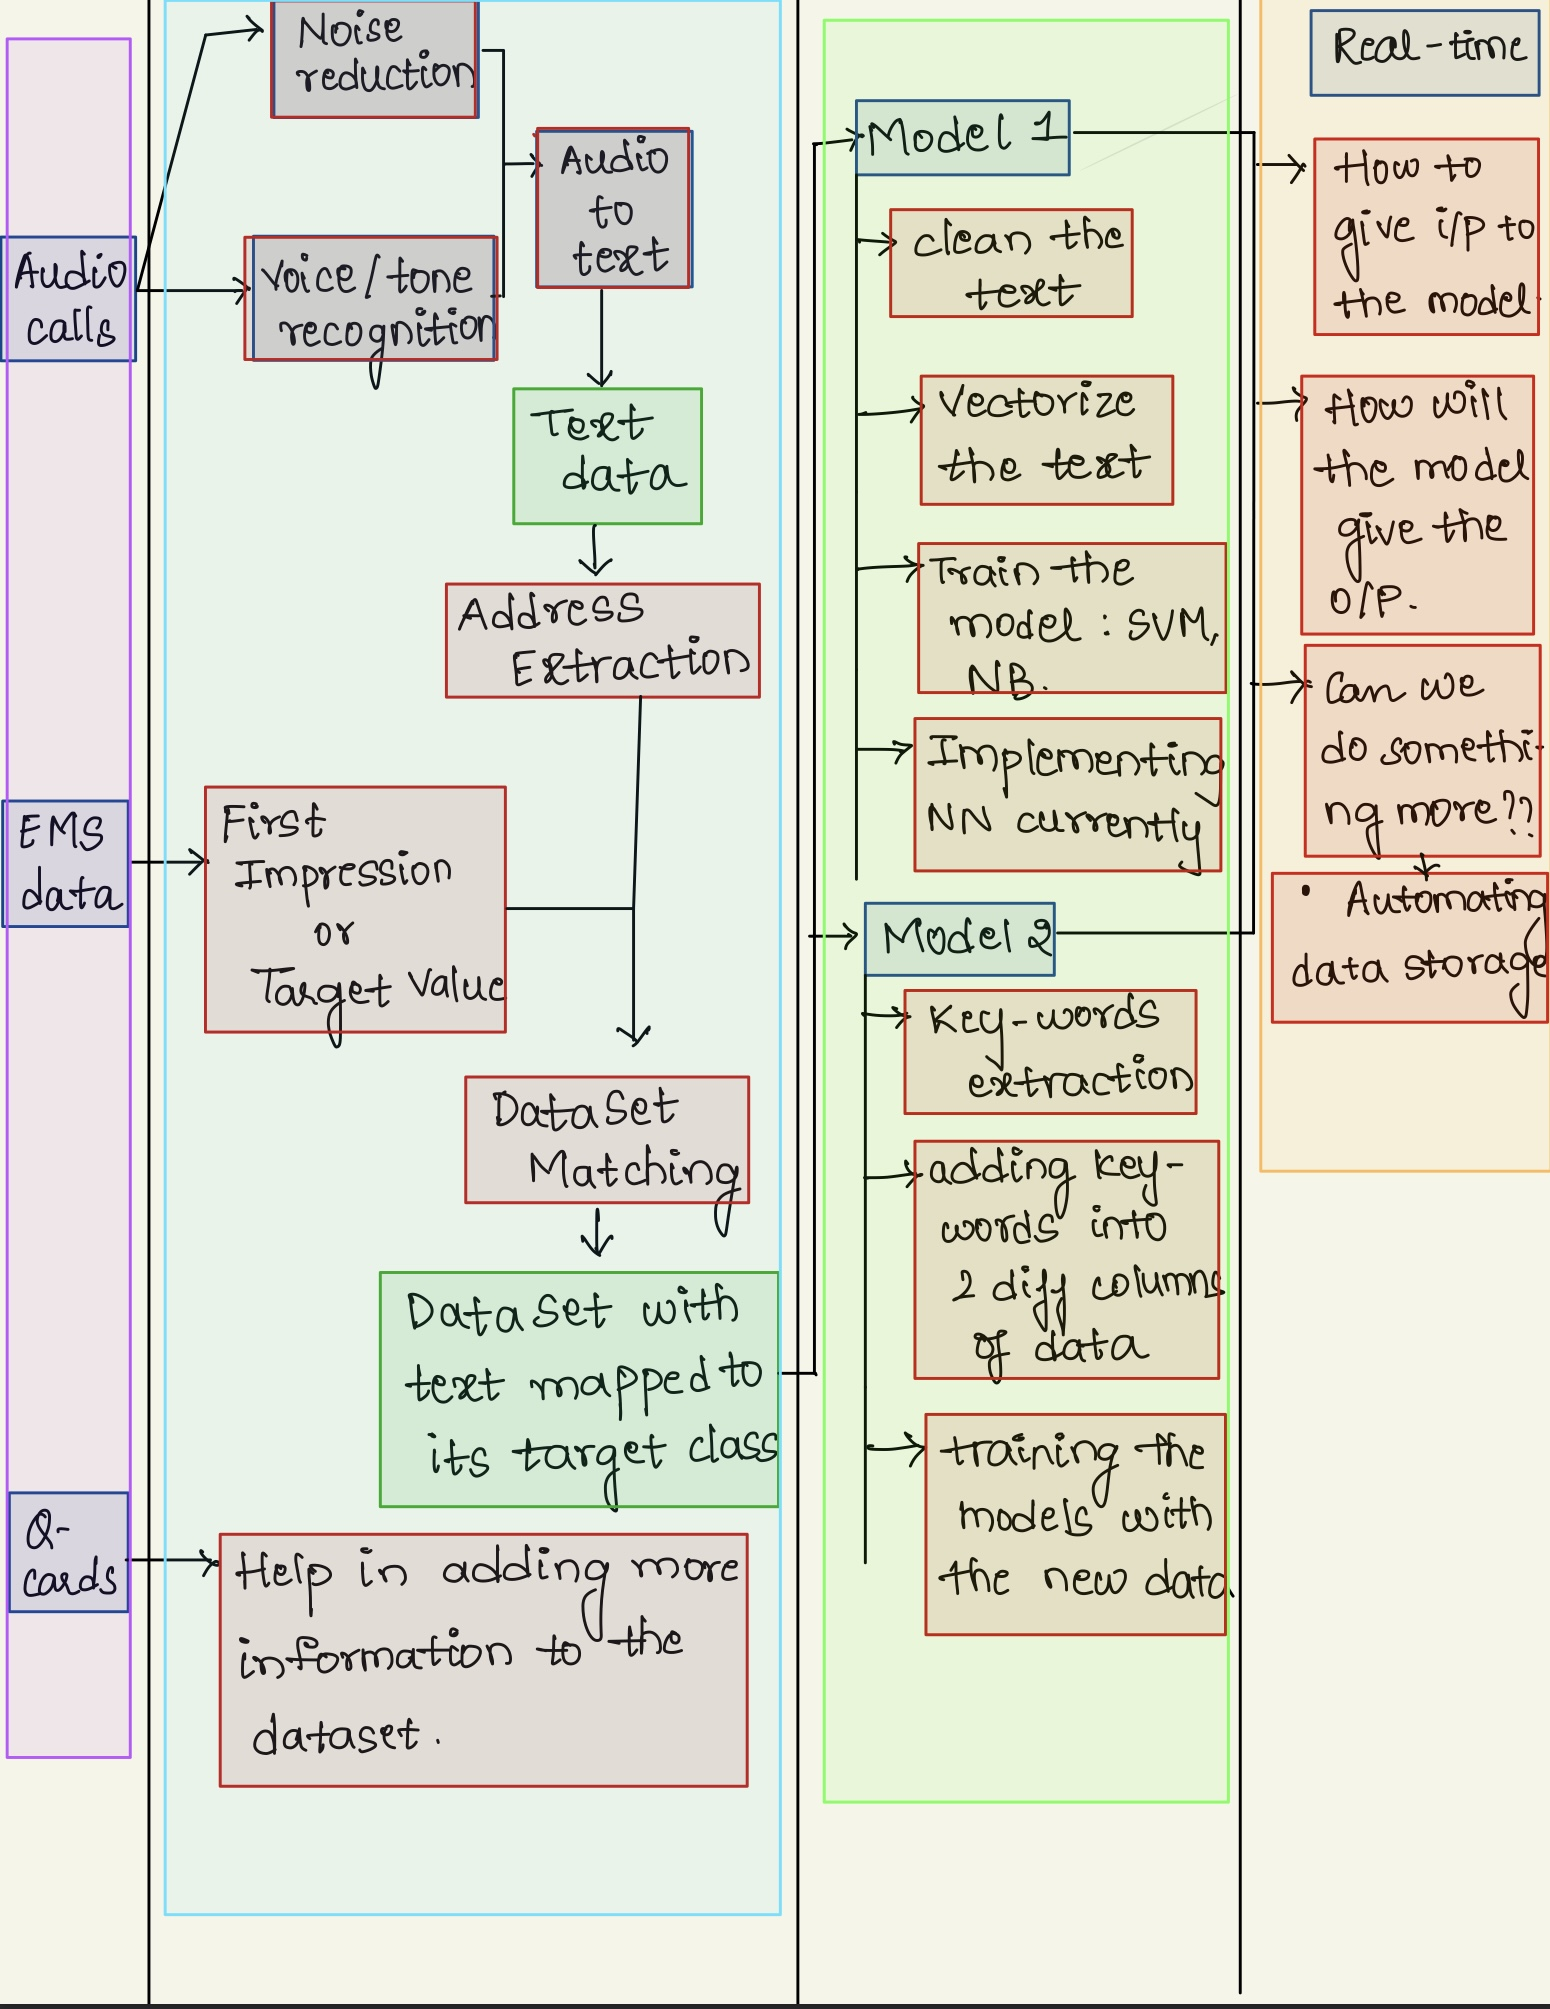 Audio
calls
EMS
data
Q-
cards
Noise
reduction
Voice/tone
recognition
Audio
to
text
Text
data
Address
Extraction
First
Impression
or
Target Value
DataSet
Matching
DataSet with
text mapped to
its target class
Help in adding more
information to the
dataset.
Model 1
clean the
text
Vectorize
the text
Train the
model : SVM,
NB.
Implementing
NN currently
Model 2
Key-words
extraction
adding key-
words into
2 diff columns
of data
training the
models with
the new data
Real-time
How to
give i/p to
the model
How will
the model
give the
O/P.
Can we
do somethi-
ng more??
• Automating
data storage